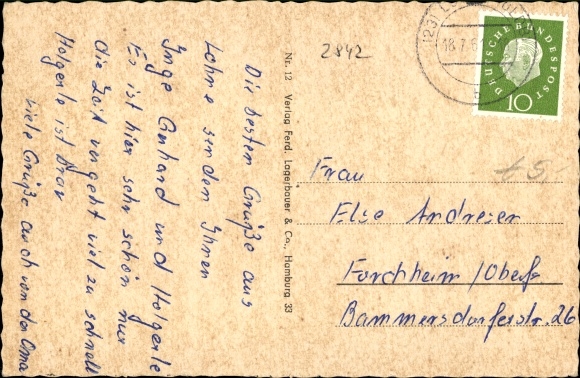 Die besten Grüße aus
Lohne senden Ihnen
Inge Gerhard und Holgerle
Es ist hier sehr schön nur
die Zeit vergeht viel zu schnell
Holgerle ist brav
viele Grüße auch von der Oma
Nr. 12 Verlag Ferd. Lagerbauer & Co., Hamburg 33
2842
(23)
18.7.6
DEUTSCHE BUNDESPOST
10
Frau
Else Andreser
Forchheim / Oberf
Bammersdorferstr. 26